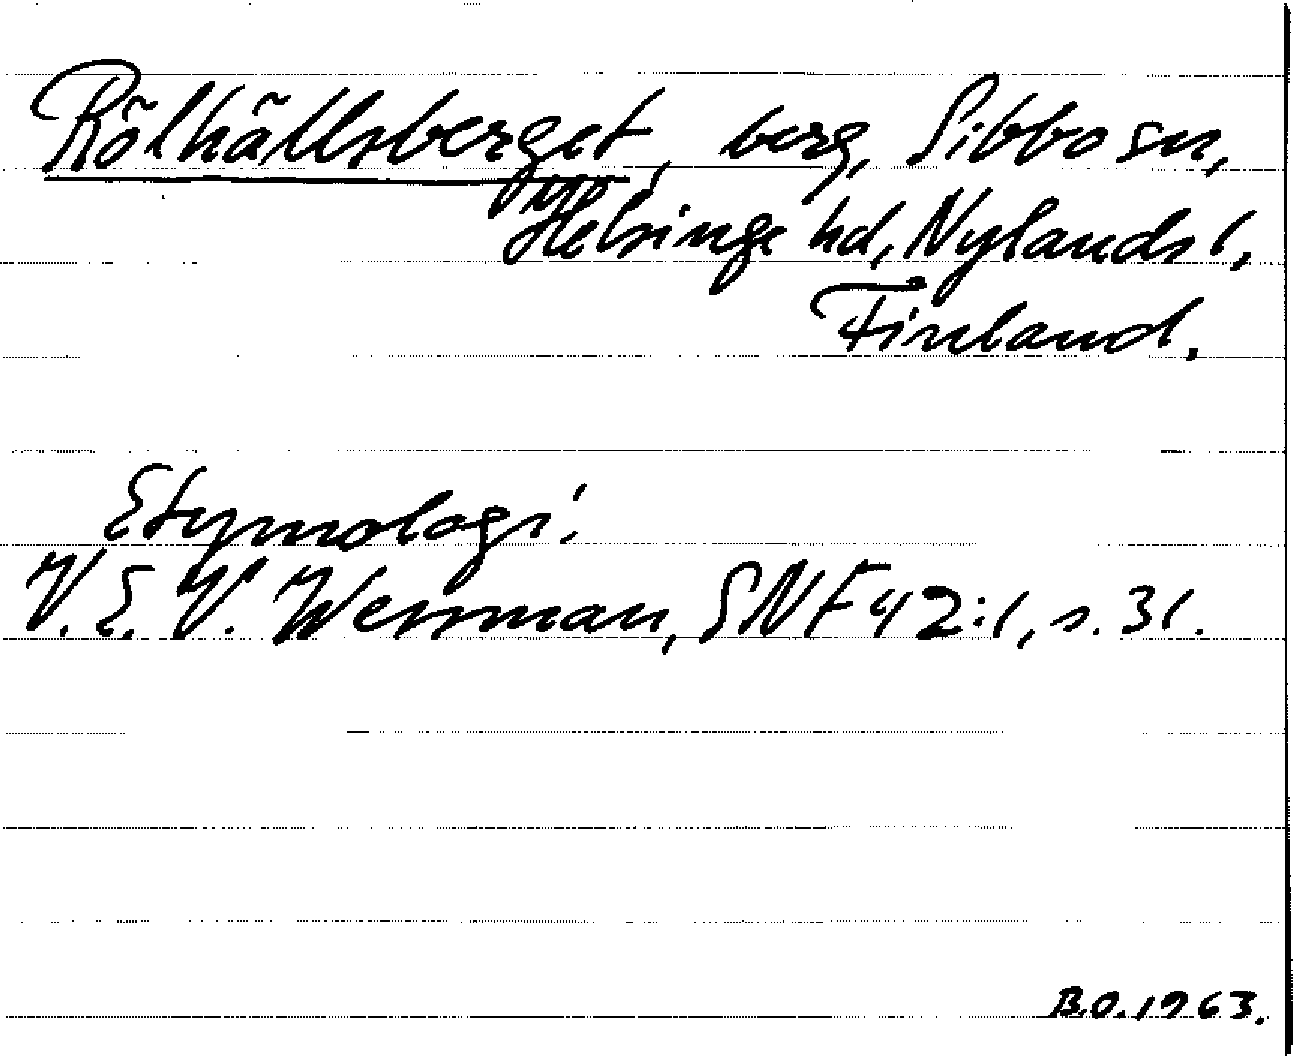 Rölhällsberget, berg, Sibbo sn,
Helsinge hd, Nylands l,
Finland.
Etymologi:
V. E. V. Wessman, SNF 42:1, s. 31.
B.O. 1963.